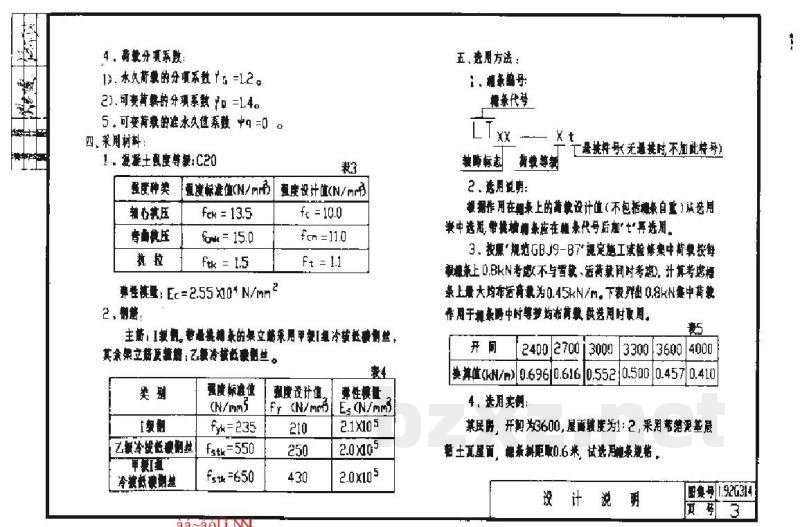 4、荷载分项系数:
1).永久荷载的分项系数 γG =1.2。
2).可变荷载的分项系数 γQ =1.4。
5、可变荷载的准永久值系数 ψq =0 。
四、采用材料:
1、混凝土强度等级:C20
表3
强度种类 强度标准值(N/mm²) 强度设计值(N/mm²)
轴心抗压 fck = 13.5 fc = 10.0
弯曲抗压 fcmk = 15.0 fcm =11.0
抗 拉 ftk = 1.5 ft = 1.1
弹性模量: Ec=2.55X10⁴ N/mm²
2、钢筋:
主筋:I级钢。带悬挑檩条的架立筋采用甲级I组冷拔低碳钢丝,
其余架立筋及箍筋:乙级冷拔低碳钢丝。
表4
类 别 强度标准值 (N/mm²) 强度设计值 fy (N/mm²) 弹性模量 Es (N/mm²)
I级钢 fyk=235 210 2.1X10⁵
乙级冷拔低碳钢丝 fstk=550 250 2.0X10⁵
甲级I组冷拔低碳钢丝 fstk=650 430 2.0X10⁵
五、选用方法:
1、檩条编号:
檩条代号
LT XX — X t
悬挑符号(无悬挑时,不加此符号)
轴跨标志 荷载等级
2、选用说明:
根据作用在檩条上的荷载设计值(不包括檩条自重)从选用
表中选用,带悬挑檩条应在檩条代号后加"t"再选用。
3、按照"规范GBJ9-87"规定施工或检修集中荷载按每
根檩条上0.8kN考虑(不与雪载、活荷载同时考虑),计算考虑檩
条上最大均布活荷载为0.45kN/m。下表列出0.8kN集中荷载
作用于檩条跨中时等梦均布荷载,供选用时取用。
表5
开 间 2400 2700 3000 3300 3600 4000
换算值(kN/m) 0.696 0.616 0.552 0.500 0.457 0.410
4、选用实例:
某民房,开间为3600,屋面坡度为1:2,采用苇箔泥基层
粘土瓦屋面,檩条斜距取0.6米,试选用檩条规格。
设 计 说 明
图集号 L92G314
页 号 3
bzxz.net